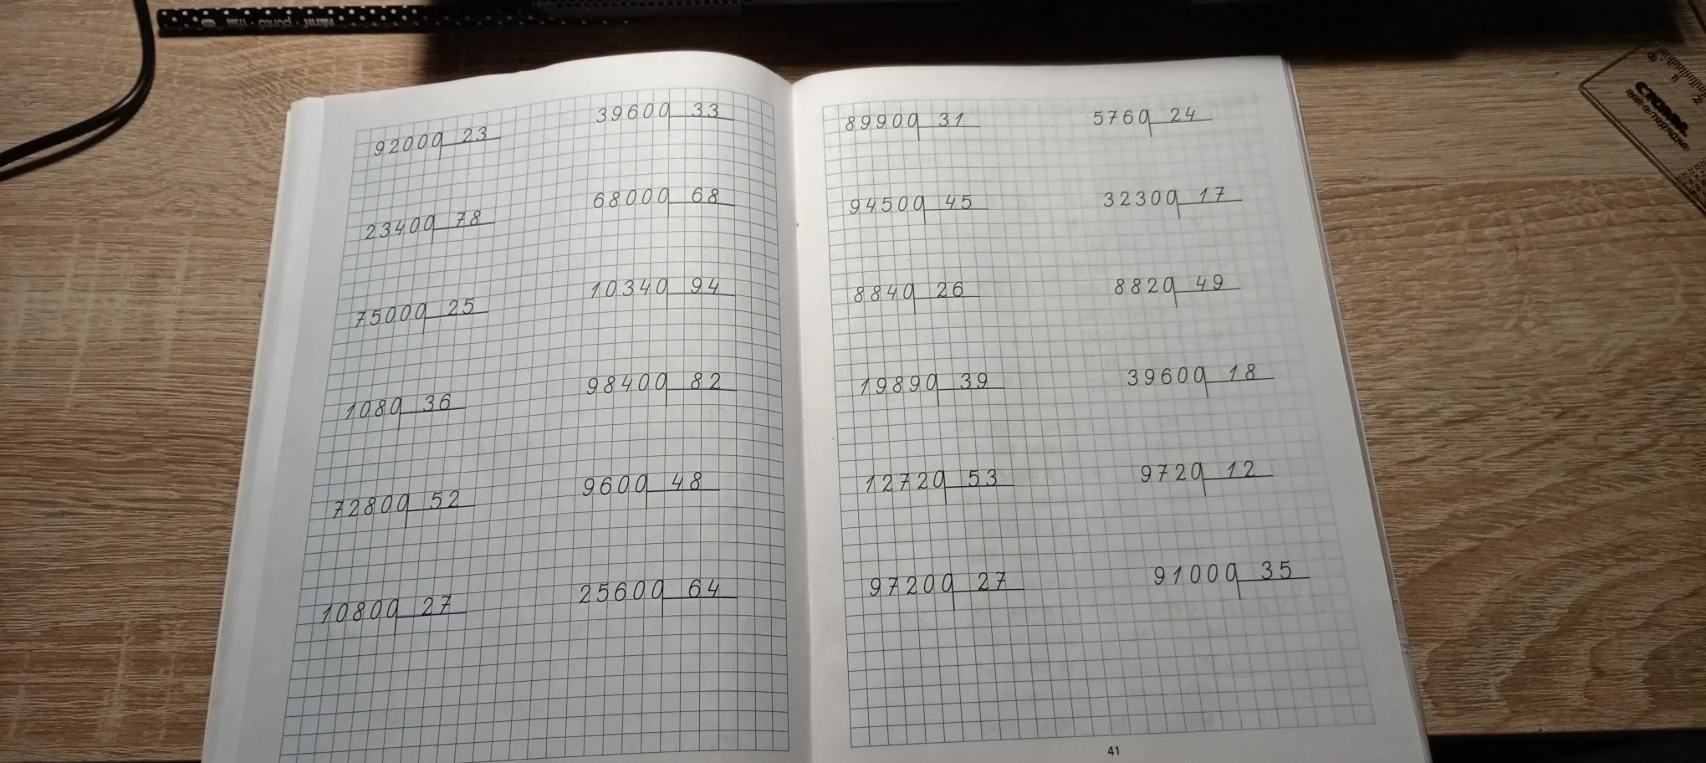 92000 23
39600 33
23400 78
68000 68
75000 25
10340 94
1080 36
98400 82
72800 52
9600 48
10800 27
25600 64
89900 31
5760 24
94500 45
32300 17
8840 26
8820 49
19890 39
39600 18
12720 53
9720 12
97200 27
91000 35
41